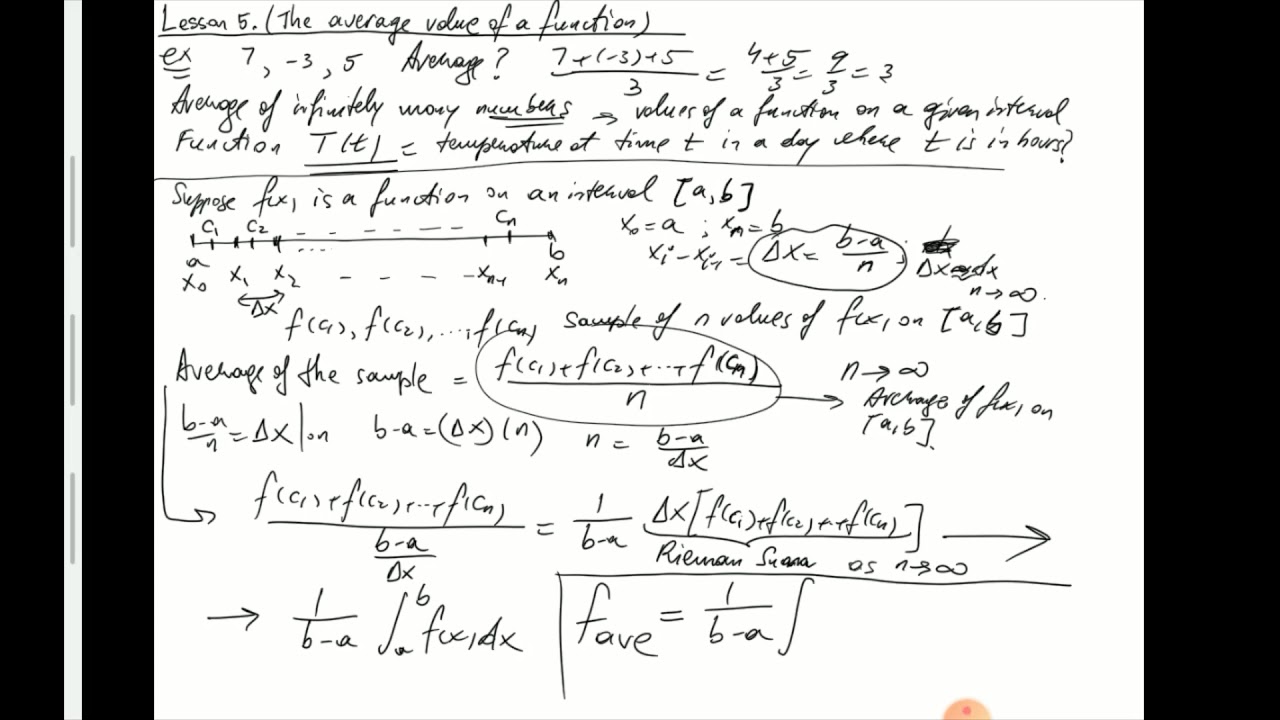 Lesson 5. (The average value of a function)
ex 7, -3, 5 Average? (7+(-3)+5)/3 = (4+5)/3 = 9/3 = 3
Average of infinitely many numbers → values of a function on a given interval
Function T(t) = temperature at time t in a day where t is in hours?
Suppose f(x) is a function on an interval [a,b]
c₁ c₂ - - - - - - cₙ
x₀ = a ; xₙ = b
a .... b
xᵢ - xᵢ₋₁ = Δx = (b-a)/n ;
x₀ x₁ x₂ - - - - xₙ₋₁ xₙ
Δx
Δx → dx
n → ∞.
f(c₁), f(c₂), ..., f(cₙ) sample of n values of f(x) on [a,b]
Average of the sample = (f(c₁)+f(c₂)+...+f(cₙ))/n → n → ∞
Average of f(x) on
[a,b].
(b-a)/n = Δx | on b-a = (Δx)(n) n = (b-a)/Δx
→ (f(c₁)+f(c₂)+...+f(cₙ))/((b-a)/Δx) = 1/(b-a) Δx[f(c₁)+f(c₂)+...+f(cₙ)] →
Rieman Suma as n→∞
→ 1/(b-a) ∫ₐᵇ f(x) dx
f ave = 1/(b-a) ∫